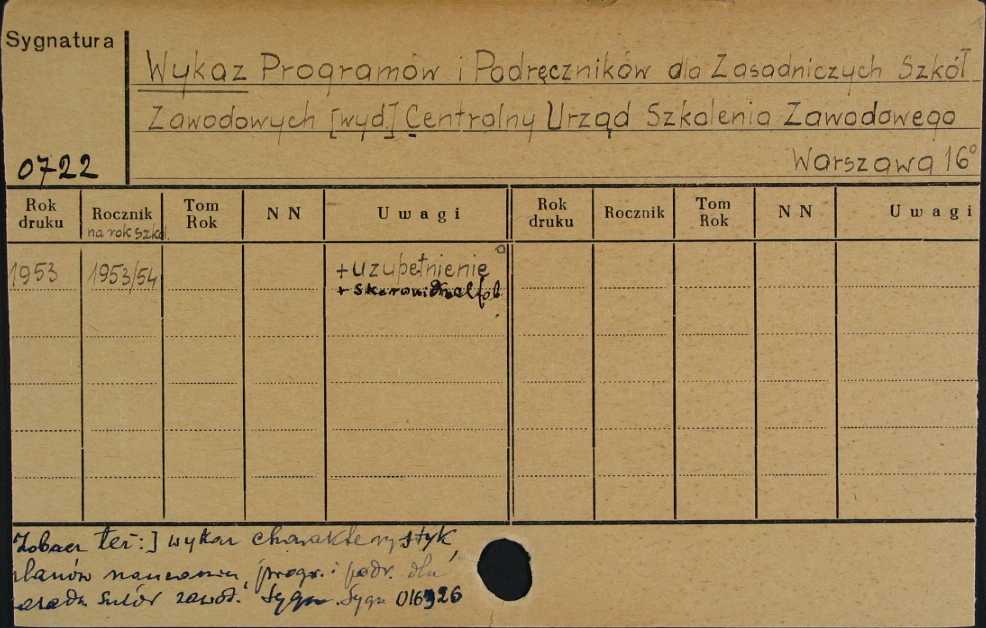 Sygnatura
Wykaz Programów i Podręczników dla Zasadniczych Szkół
Zawodowych [wyd.] Centralny Urząd Szkolenia Zawodowego
0722
Warszawa 16°
Rok druku Rocznik na rok szkol. Tom Rok NN Uwagi Rok druku Rocznik Tom Rok NN Uwagi
1953 1953/54 + uzupełnienie
+ skorowidz alf.
Zobacz też:] wykaz charakterystyk,
planów nauczania, progr. i podr. dla
zasadn. szkół zawod. Sygn. 016926